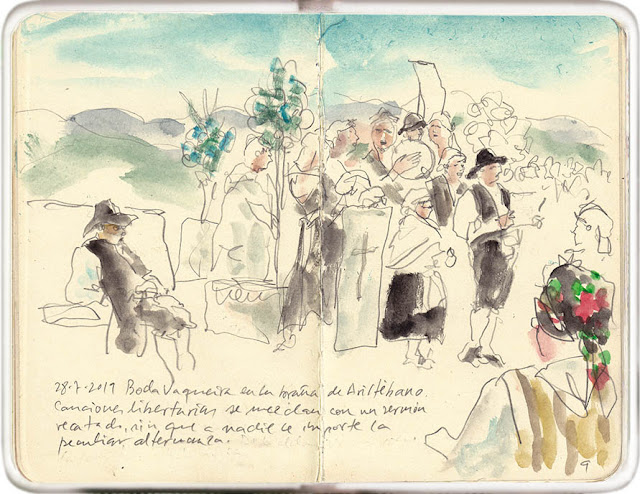 28-7-2019 Boda vaqueira en la braña de Aristébano.
Canciones libertarias se mezclan con un sermón
recatado, sin que a nadie le importe la
peculiar alternancia.
9